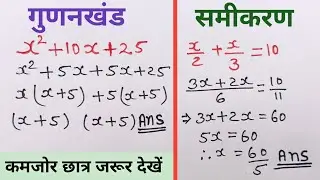 गुणनखंड
x²+10x+25
x²+5x+5x+25
x(x+5)+5(x+5)
(x+5) (x+5) Ans
समीकरण
x/2 + x/3 = 10
3x+2x/6 = 10/11
⇒ 3x+2x = 60
5x = 60
∴ x = 60/5 Ans
कमजोर छात्र जरूर देखें